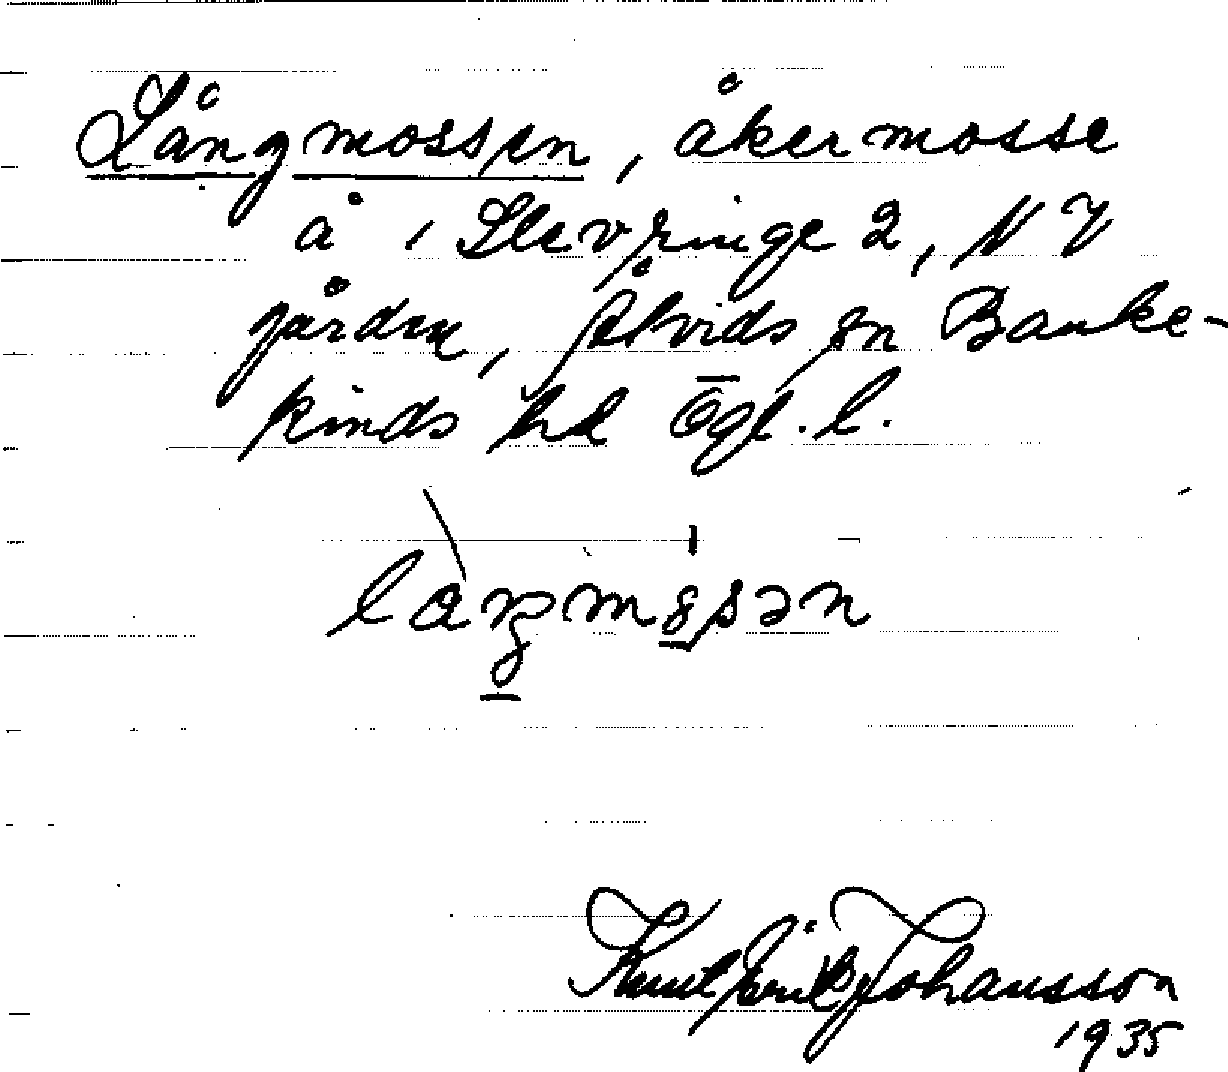 Långmossen, åkermosse
å 1 Slevringe 2, NV
gården, Åtvids sn Banke-
kinds hd Ögl. l.
Knut Erik Johansson
1935